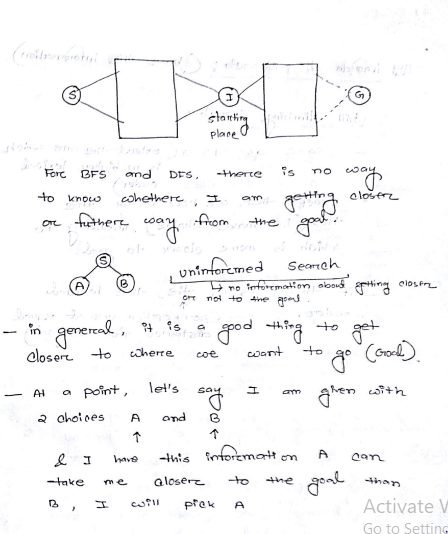 S
I
G
starting
place
For BFS and DFS, there is no way
to know whether, I am getting closer
or futher way from the goal.
S
A
B
uninformed search
↳ no information about getting closer
or not to the goal
— in general, it is a good thing to get
closer to where we want to go (Goal).
— At a point, let's say I am given with
2 choices A and B
↑ ↑
& I have this information A can
take me closer to the goal than
B, I will pick A
Activate
Go to Settin